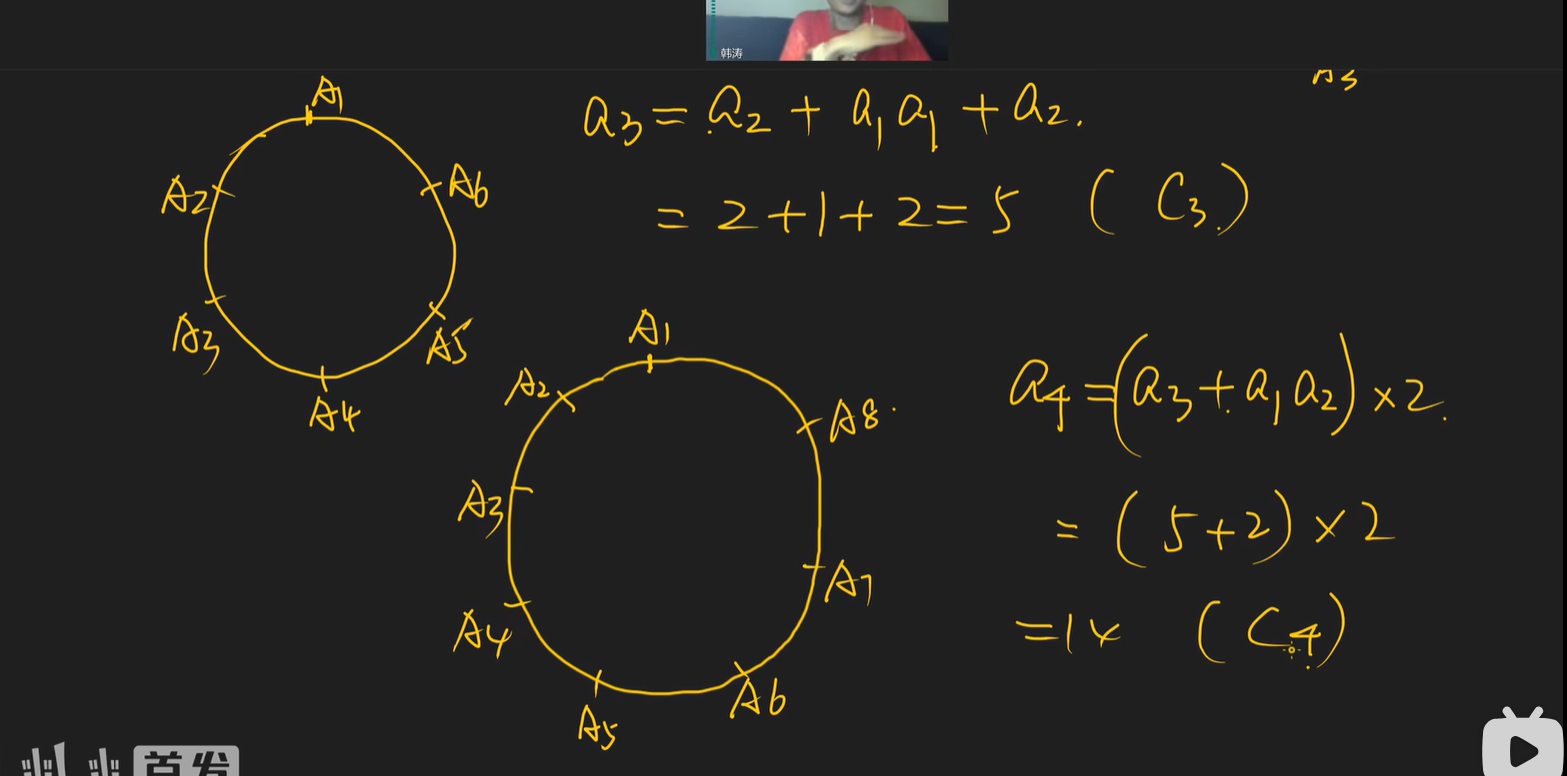 韩涛
A5
A1
A2
A6
A3
A5
A4
a3 = a2 + a1 a1 + a2.
= 2 + 1 + 2 = 5 ( C3 )
A1
A2
A8
A3
A4
A7
A5
A6
a4 = (a3 + a1 a2) × 2.
= ( 5 + 2 ) × 2
= 14 ( C4 )
首发